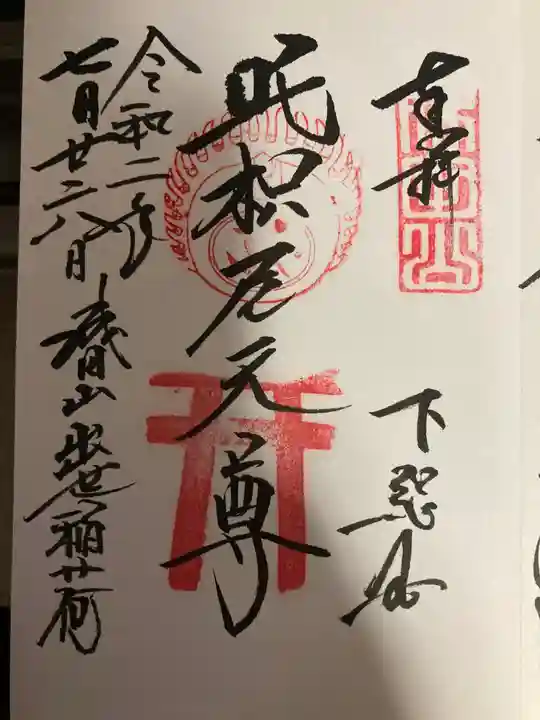 奉拝
下総国
吒枳尼天尊
成田山出世稲荷
令和二年
七月廿六日